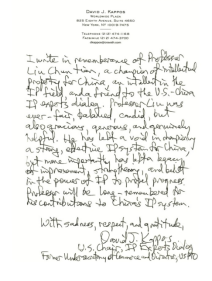 DAVID J. KAPPOS
WORLDWIDE PLAZA
825 EIGHTH AVENUE, SUITE 4080
NEW YORK, NY 10019-7475
TELEPHONE (212) 474-1168
I write in remembrance of Professor
Liu Chun-tian, a champion of intellectual
property for China, an intellect in the
IP field, and a friend to the U.S.-China
IP experts dialog. Professor Liu was
ever-fair, balanced, candid, but
also gracious, generous, and genuinely
helpful. He has left a void in
a strong, effective IP system for China,
but more importantly has left a legacy
of improvement, and belief
in the powers of IP to propel progress.
Professor will be long-remembered for
his contributions to China's IP system.
With sadness, respect, and gratitude,
David J. Kappos
U.S. Chair, IP Experts Dialog
Former Undersecretary of Commerce Director, USPTO